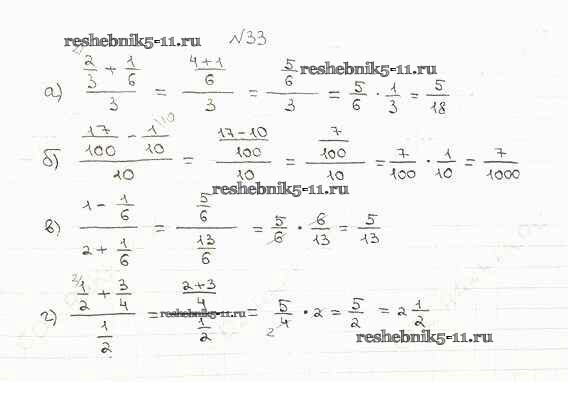 reshebnik5-11.ru
№33
а) (2/3 + 1/6)/3 = ((4+1)/6)/3 = (5/6)/3 = 5/6 · 1/3 = 5/18
reshebnik5-11.ru
б) (17/100 - 1/10)/10 = ((17-10)/100)/10 = (7/100)/10 = 7/100 · 1/10 = 7/1000
reshebnik5-11.ru
в) (1 - 1/6)/(2 + 1/6) = (5/6)/(13/6) = 5/6 · 6/13 = 5/13
г) (1/2 + 3/4)/(1/2) = ((2+3)/4)/(1/2) = 5/4 · 2 = 5/2 = 2 1/2
reshebnik5-11.ru
reshebnik5-11.ru